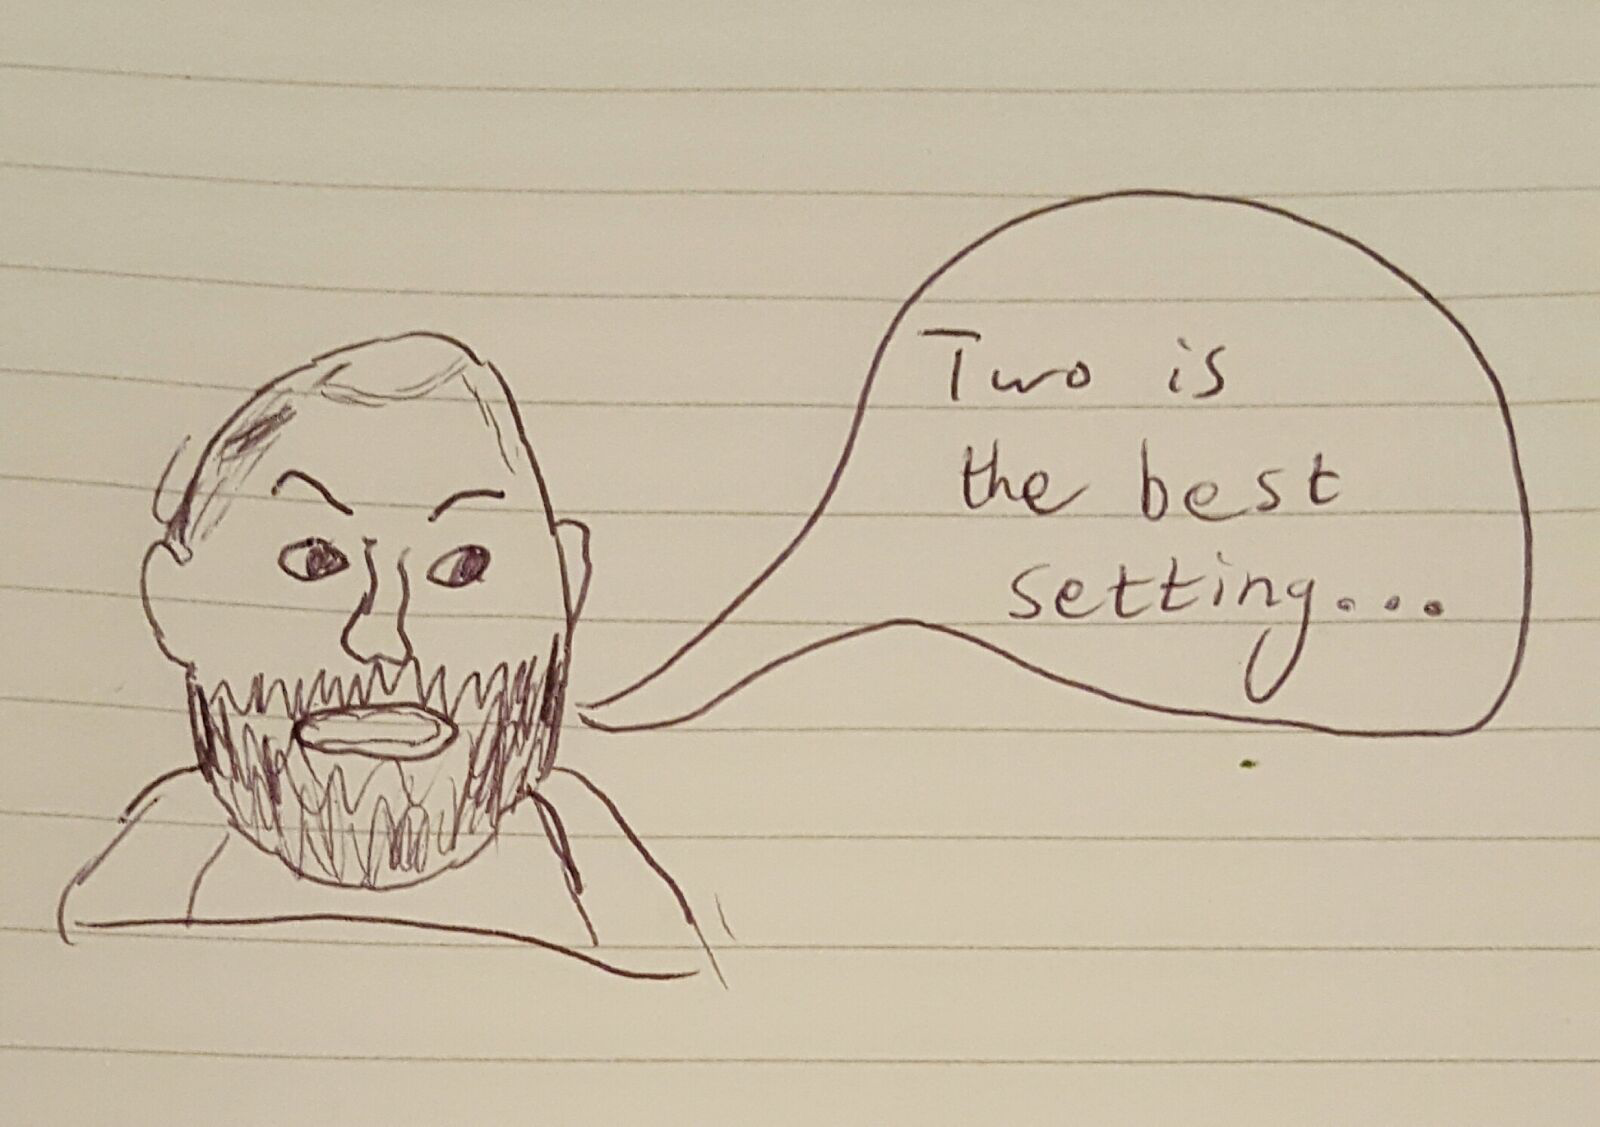 Two is
the best
setting...